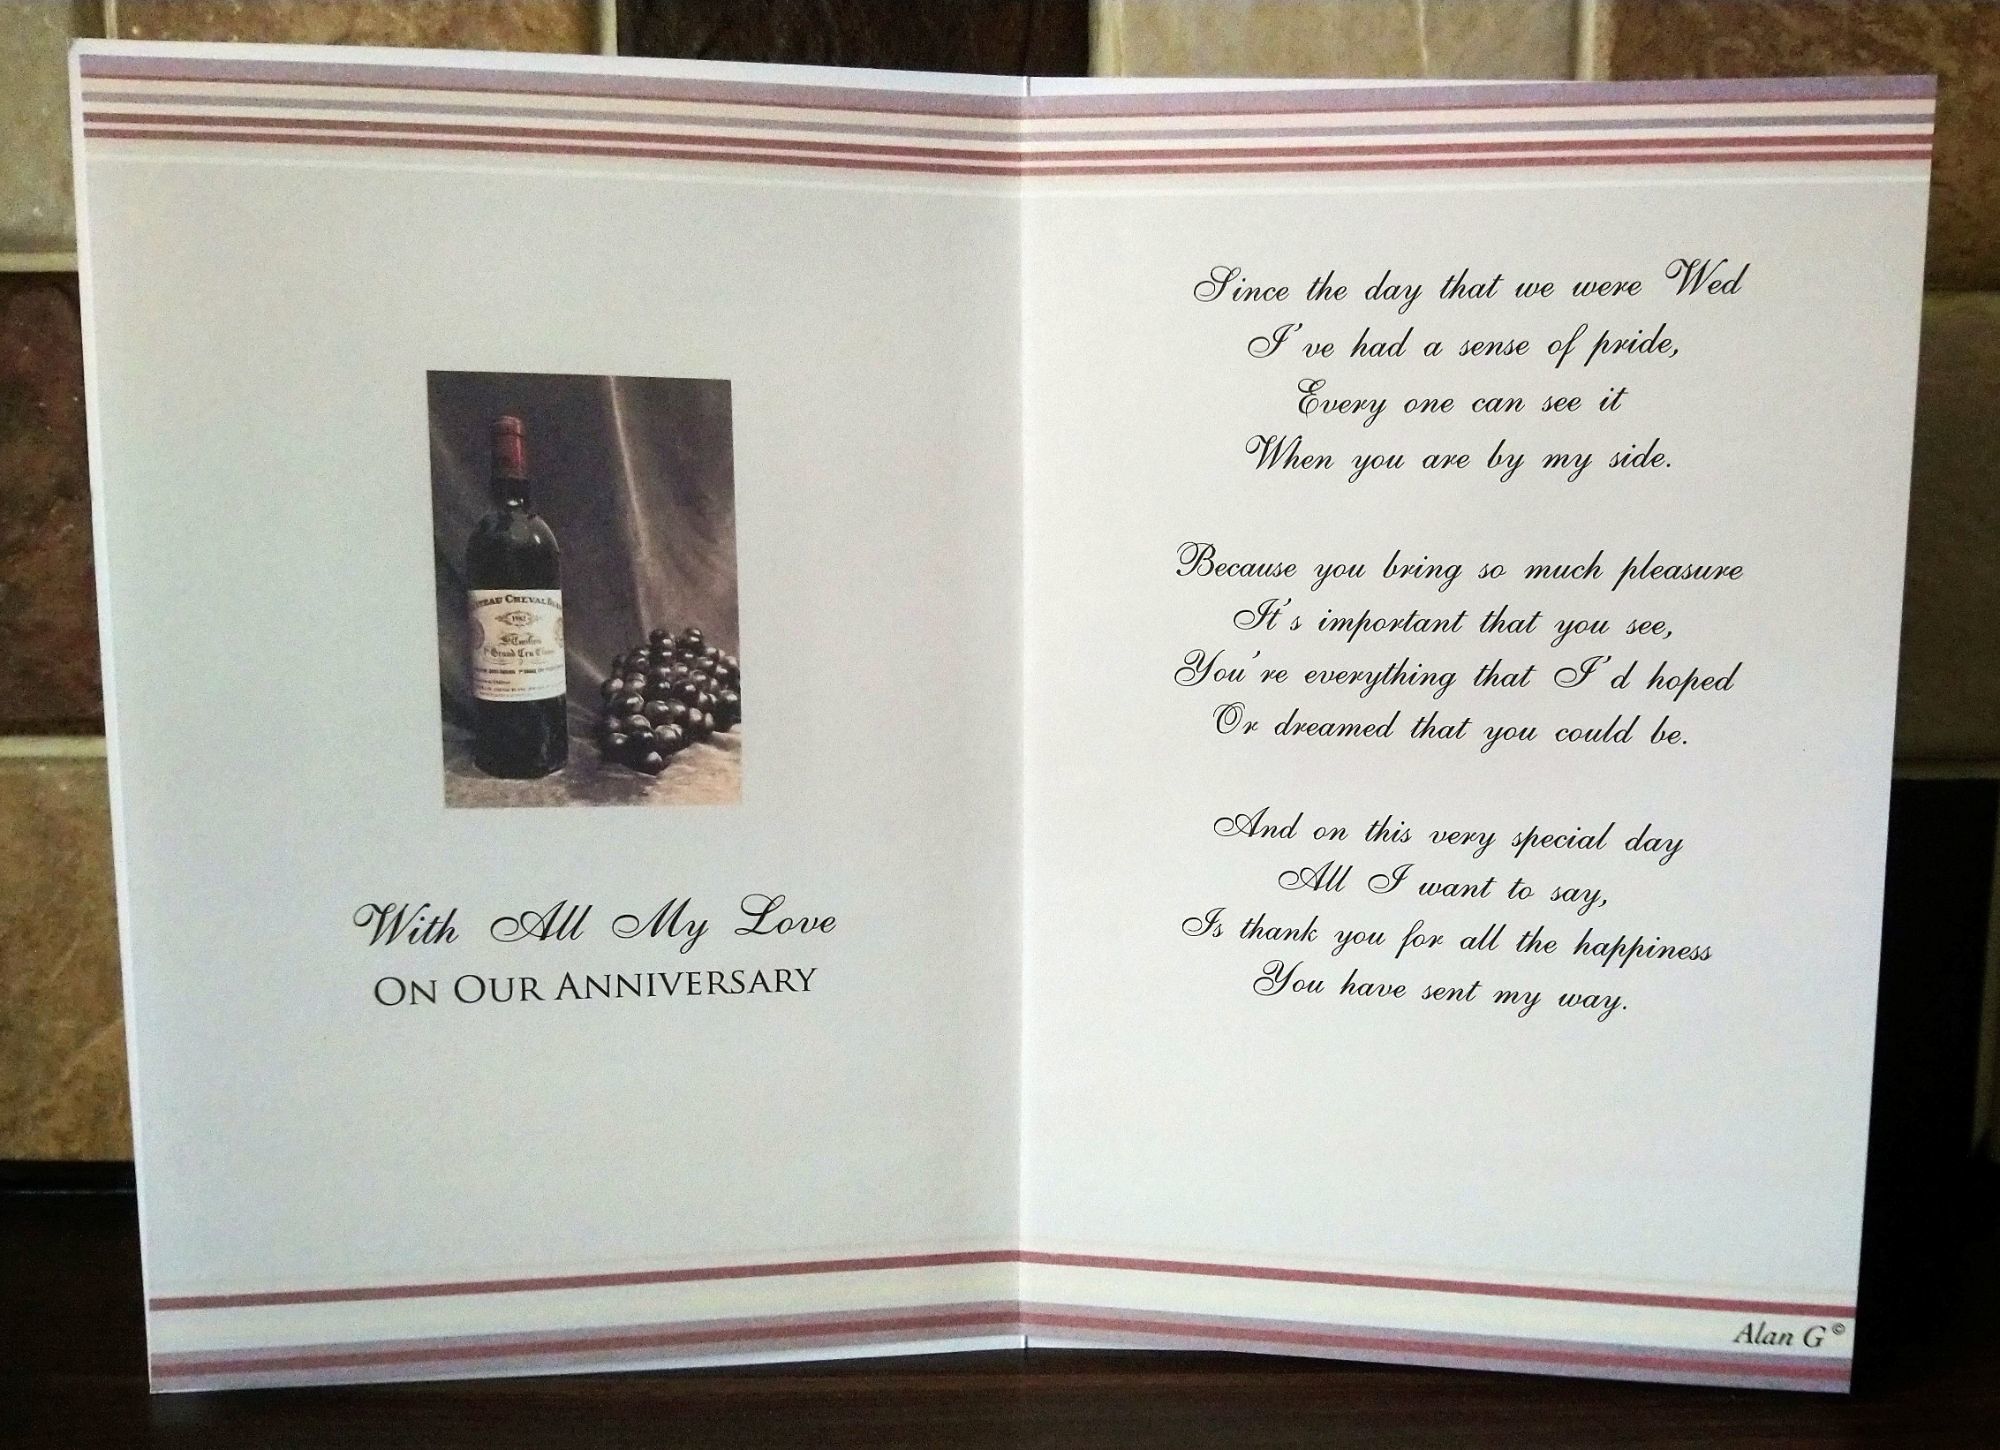 CHEVAL
1982
Grand Cru
With All My Love
ON OUR ANNIVERSARY
Since the day that we were Wed
I've had a sense of pride,
Every one can see it
When you are by my side.
Because you bring so much pleasure
It's important that you see,
You're everything that I'd hoped
Or dreamed that you could be.
And on this very special day
All I want to say,
Is thank you for all the happiness
You have sent my way.
Alan G ©